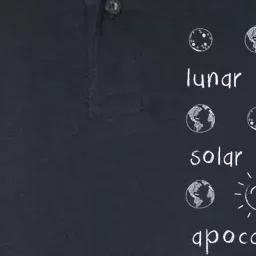 lunar
solar
apoco